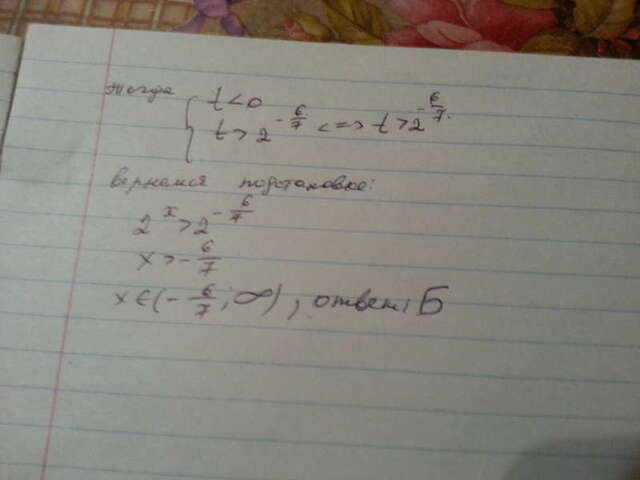 тогда { t < 0
t > 2^{-6/7} <=> t > 2^{-6/7}.
вернемся подстановке:
2^x > 2^{-6/7}
x > -6/7
x ∈ (-6/7; ∞), ответ: Б